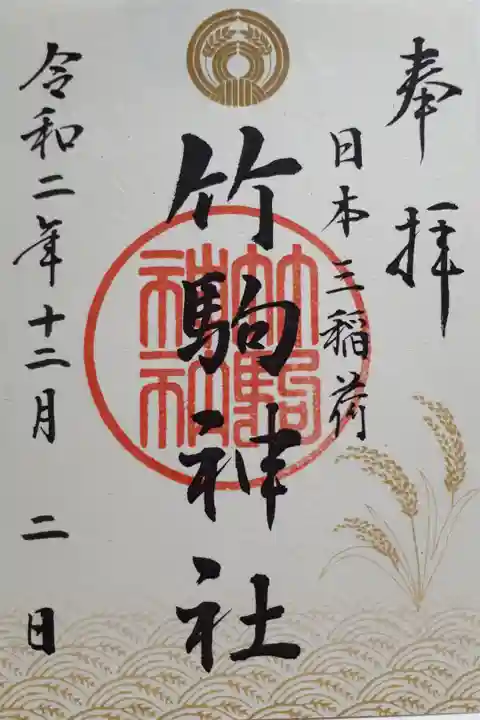 奉拝
日本三稲荷
竹駒神社
竹駒神社
令和二年十二月 二日